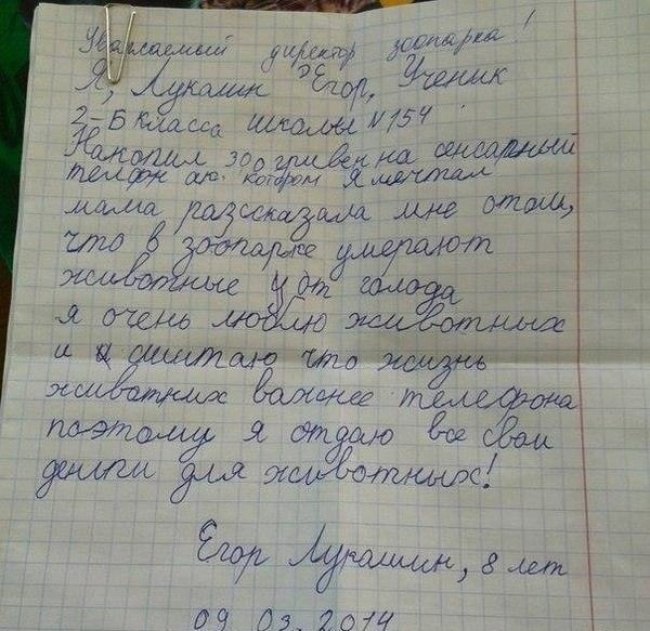 Уважаемый директор зоопарка!
Я, Лукашин Егор, Ученик
2-Б класса школы №154
Накопил 300 гривен на сенсарный
телфон аю котором я мечтал
мама расссказала мне отом,
что в зоопарке умерают
животные от голода
я очень люблю животных
и сшитаю что жизнь
животних важнее телефона
поэтому я отдаю все свои
деньги для животных!
Егор Лукашин, 8 лет
09 03. 2014